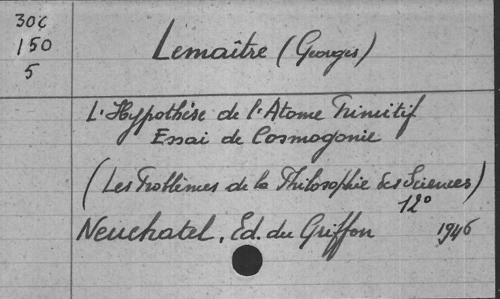 30c
150
5
Lemaître (Georges)
L'Hypothèse de l'Atome Primitif
Essai de Cosmogonie
(Les Problèmes de la Philosophie des Sciences)
12°
Neuchatel, Ed. du Griffon 1946